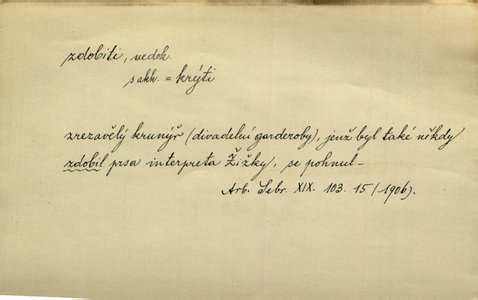 zdobiti, nedok.
s akk. = krýti
zrezavělý krunýř (divadelní garderoby), jenž byl také někdy
zdobil prsa interpreta Žižky, se pohnul –
Arb. Sebr. XIX. 103. 15 (1906).